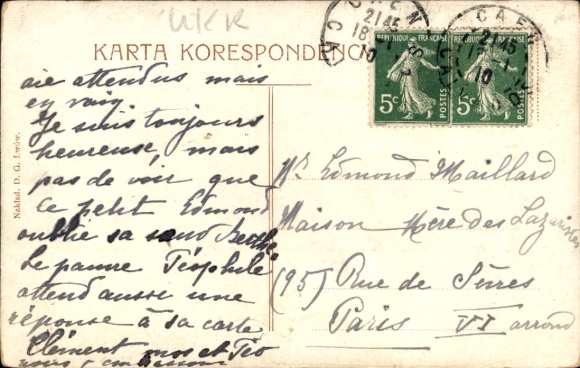 UKR
KARTA KORESPONDENC
CAEN
2145
18
10
CAEN
10
REPUBLIQUE FRANÇAISE
5c
POSTES
REPUBLIQUE FRANÇAISE
5c
POSTES
aie attendus mais
en vain
Je suis toujours
heureuse, mais
pas de voir que
ce petit Edmond
oublie sa sœur Berthe
Le pauvre Théophile
attend aussi une
réponse à sa carte
Clément
Nakład. D. G. Lwów.
Mr Edmond Maillard
Maison Mère des Lazaristes
(95) Rue de Sèvres
Paris VI arrond